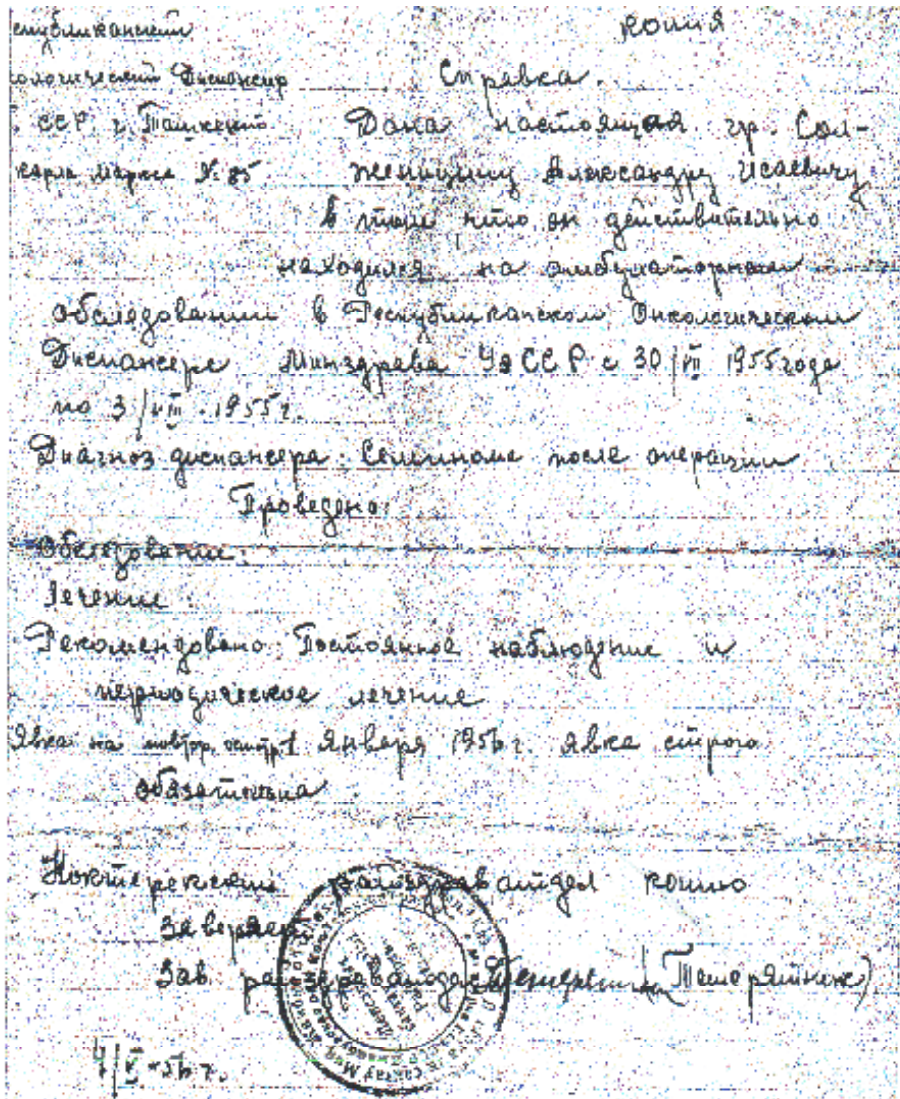 копия
Справка.
ССР г. Ташкент Дана настоящая гр. Сол-
Карла Маркса № 85 женицину Александру Исаевичу
в том что он действительно
находился на амбулаторном
обследовании в Республиканском Онкологическом
Диспансере Минздрава УзССР с 30/VII 1955 года
по 3/VIII - 1955 г.
Диагноз диспансера: Семинома после операции
Проведено:
Обследование:
Лечение:
Рекомендовано: Постоянное наблюдение и
периодическое лечение
Явка на 1 Января 1956 г. явка строго
обязательна.
Коктерекский райздравотдел копию
Заверяет
Зав. райздравотдел
4/V-56 г.